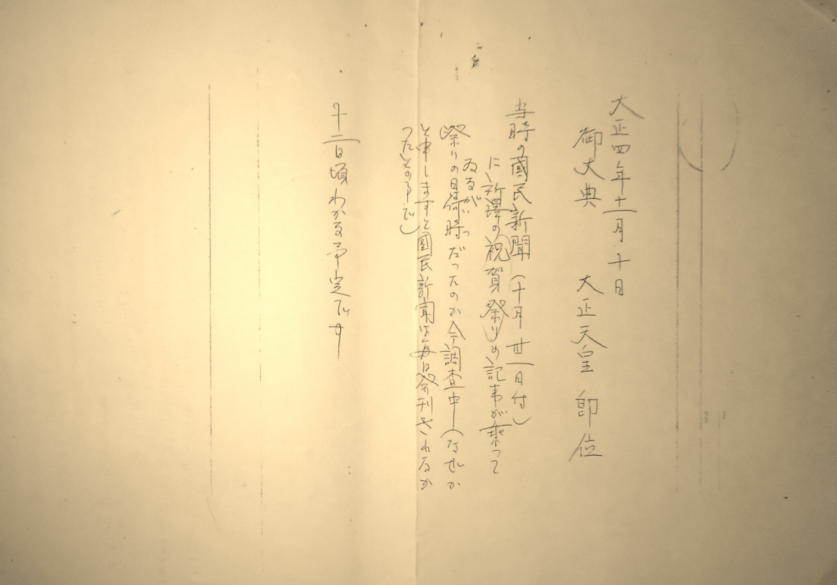 大正四年十一月・十日
御大典　大正天皇 即位
当時の國民新聞（十月廿一日付）
に、新澤の祝賀祭りの記事が乗って
ゐるが、
祭りの日何時だったのか今調査中（なぜか
と申しますと國民新聞は毎日発刊されなか
ったとの事で）
十二日頃わかる予定です